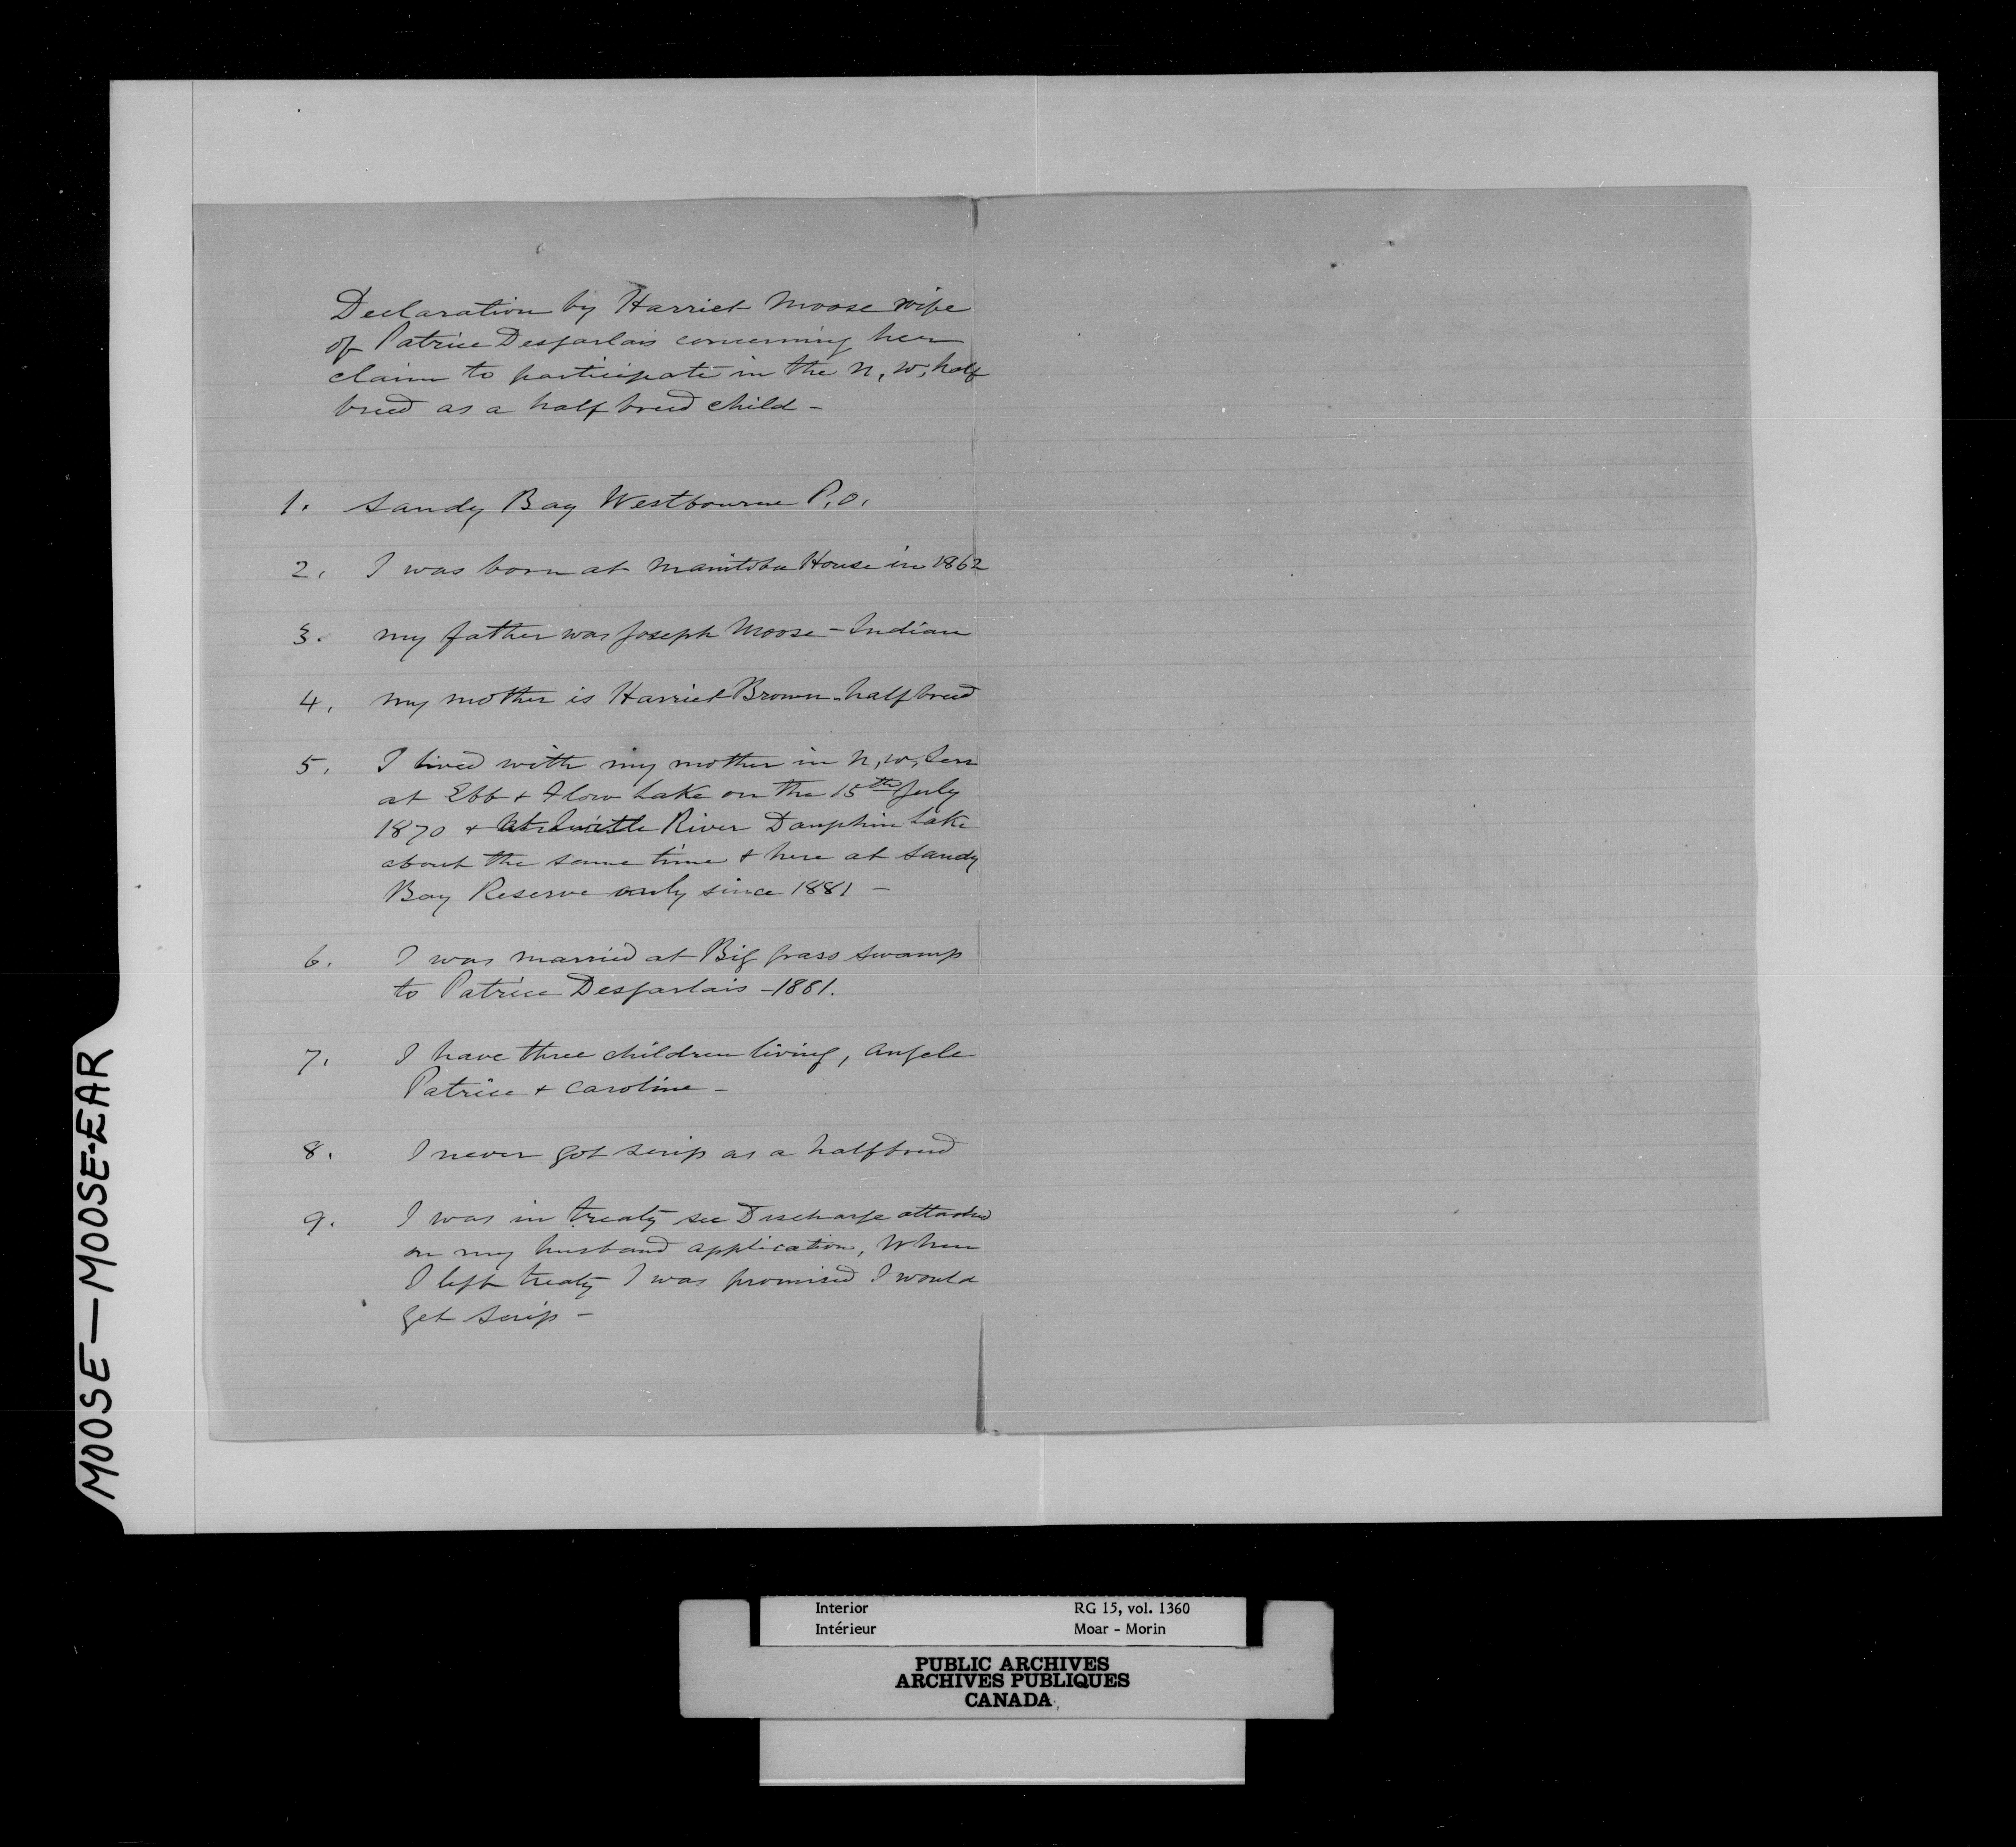 Declaration by Harriet Moose wife
of Patrice Desjarlais concerning her
claim to participate in the N, W, half
breed as a half breed child -
1. Sandy Bay Westbourne P.O.
2, I was born at Manitoba House in 1862
3. my father was Joseph Moose - Indian
4, my mother is Harriet Brown - half breed
5, I lived with my mother in N, W, Terr
at Ebb & Flow Lake on the 15th July
1870 & River Dauphin Lake
about the same time & here at Sandy
Bay Reserve only since 1881 -
6. I was married at Big Grass Swamp
to Patrice Desjarlais - 1881.
7, I have three children living, Angele
Patrice & Caroline -
8, I never got scrip as a halfbreed
9. I was in treaty see Discharge attached
on my husband application, When
I left treaty I was promised I would
get scrip -
MOOSE — MOOSE-EAR
Interior RG 15, vol. 1360
Intérieur Moar - Morin
PUBLIC ARCHIVES
ARCHIVES PUBLIQUES
CANADA